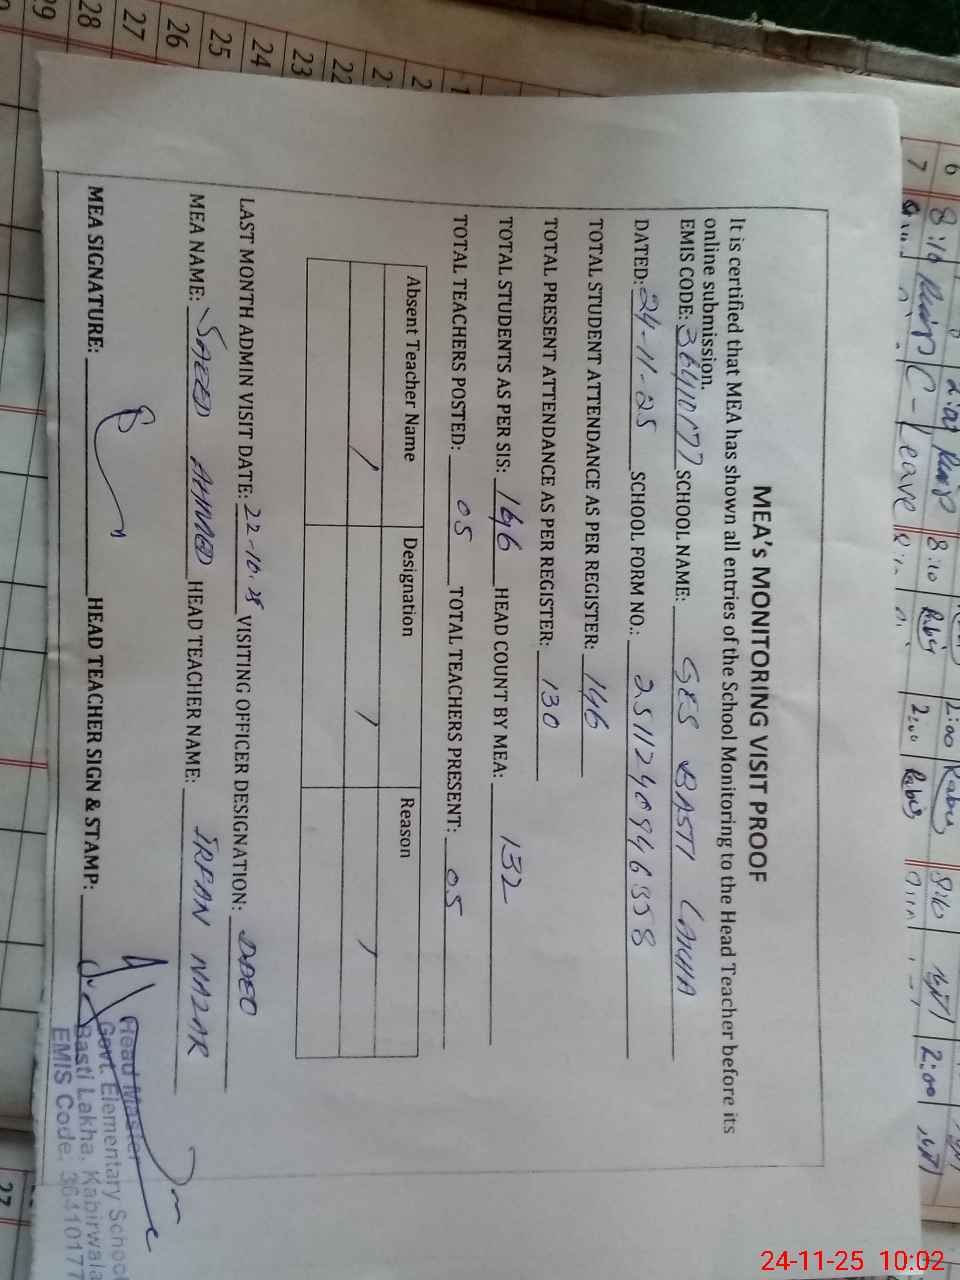 MEA's MONITORING VISIT PROOF
It is certified that MEA has shown all entries of the School Monitoring to the Head Teacher before its
online submission.
EMIS CODE: 36410177 SCHOOL NAME: GES BASTI LAKHA
DATED: 24-11-25 SCHOOL FORM NO.:
TOTAL STUDENT ATTENDANCE AS PER REGISTER: 146
TOTAL PRESENT ATTENDANCE AS PER REGISTER: 130
TOTAL STUDENTS AS PER SIS: 146 HEAD COUNT BY MEA: 132
TOTAL TEACHERS POSTED: 05 TOTAL TEACHERS PRESENT: 05
Absent Teacher Name Designation Reason
LAST MONTH ADMIN VISIT DATE: 22-10-25 VISITING OFFICER DESIGNATION: DDEO
MEA NAME: SAEED AHMAD HEAD TEACHER NAME: IRFAN NAZAR
MEA SIGNATURE: HEAD TEACHER SIGN & STAMP:
Head Master
Govt. Elementary School
Basti Lakha, Kabirwala
EMIS Code. 36410177
29
28
27
26
25
24
23
22
6 8:10 2:00 8:10 2:00 8:10 2:00
7 C-Leave
27
24-11-25 10:02